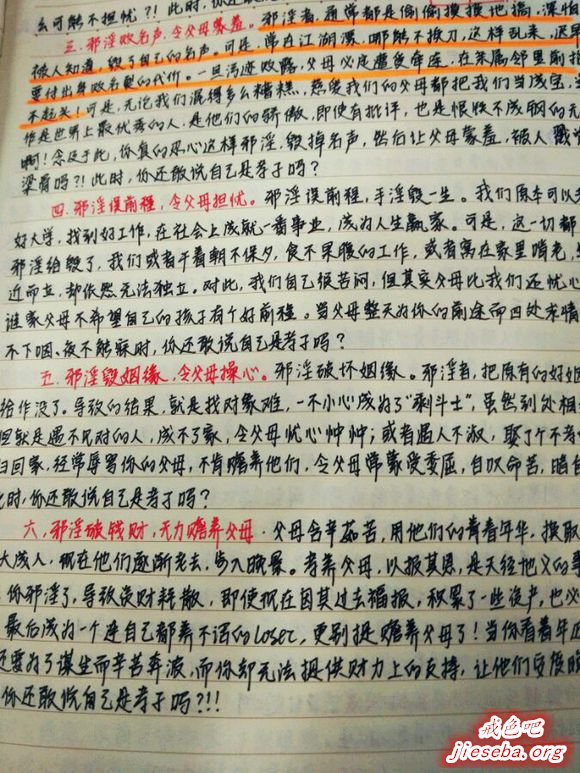 么可能不担忧?!此时,你还敢
三.邪淫败名声,令父母蒙羞。邪淫者,通常都是偷偷摸摸地搞,深怕
被人知道,毁了自己的名声。可是,常在江湖漂,哪能不挨刀,这样乱来,迟早
要付出身败名裂的代价。一旦污迹败露,父母必定遭受牵连,在亲属邻里前抬
不起头!可是,无论我们混得多么糟糕,慈爱我们的父母都把我们当成宝,当
作是世界上最优秀的人,是他们的骄傲,即使有批评,也是恨铁不成钢的无
啊!念及于此,你真的忍心这样邪淫,毁掉名声,然后让父母蒙羞,被人戳
梁骨吗?!此时,你还敢说自己是孝子吗?
四.邪淫误前程,令父母担忧。邪淫误前程,手淫毁一生。我们原本可以考
好大学,找到好工作,在社会上成就一番事业,成为人生赢家。可是,这一切都
邪淫给毁了,我们或者干着朝不保夕,食不果腹的工作,或者窝在家里啃老,
近而立,却依然无法独立。对此,我们自己很苦闷,但其实父母比我们还忧心
谁家父母不希望自己的孩子有个好前程。当父母整天为你的前途而四处求情
不下咽、夜不能寐时,你还敢说自己是孝子吗?
五.邪淫毁姻缘,令父母操心。邪淫破坏姻缘。邪淫者,把原有的好姻
给作没了。导致的结果,就是找对象难,一不小心成为了“剩斗士”,虽然到处相
但就是遇不见对的人,成不了家,令父母忧心忡忡;或者遇人不淑,娶了个不孝
归回家,经常辱骂你的父母,不肯赡养他们,令父母常蒙受委屈,自叹命苦,暗自
此时,你还敢说自己是孝子吗?
六.邪淫破钱财,无力赡养父母。父母含辛茹苦,用他们的青春年华,换取
大成人,现在他们逐渐老去,步入晚景。孝养父母,以报其恩,是天经地义的事
你邪淫了,导致浪财耗散,即便现在因其过去福报,积累了一些资产,也必
最后成为一个连自己都养不活的loser,更别提赡养父母了!当你看着年迈
还要为了谋生而辛苦奔波,而你却无法提供财力上的支持,让他们安度晚
你还敢说自己是孝子吗?!!
戒色吧
jieseba.org